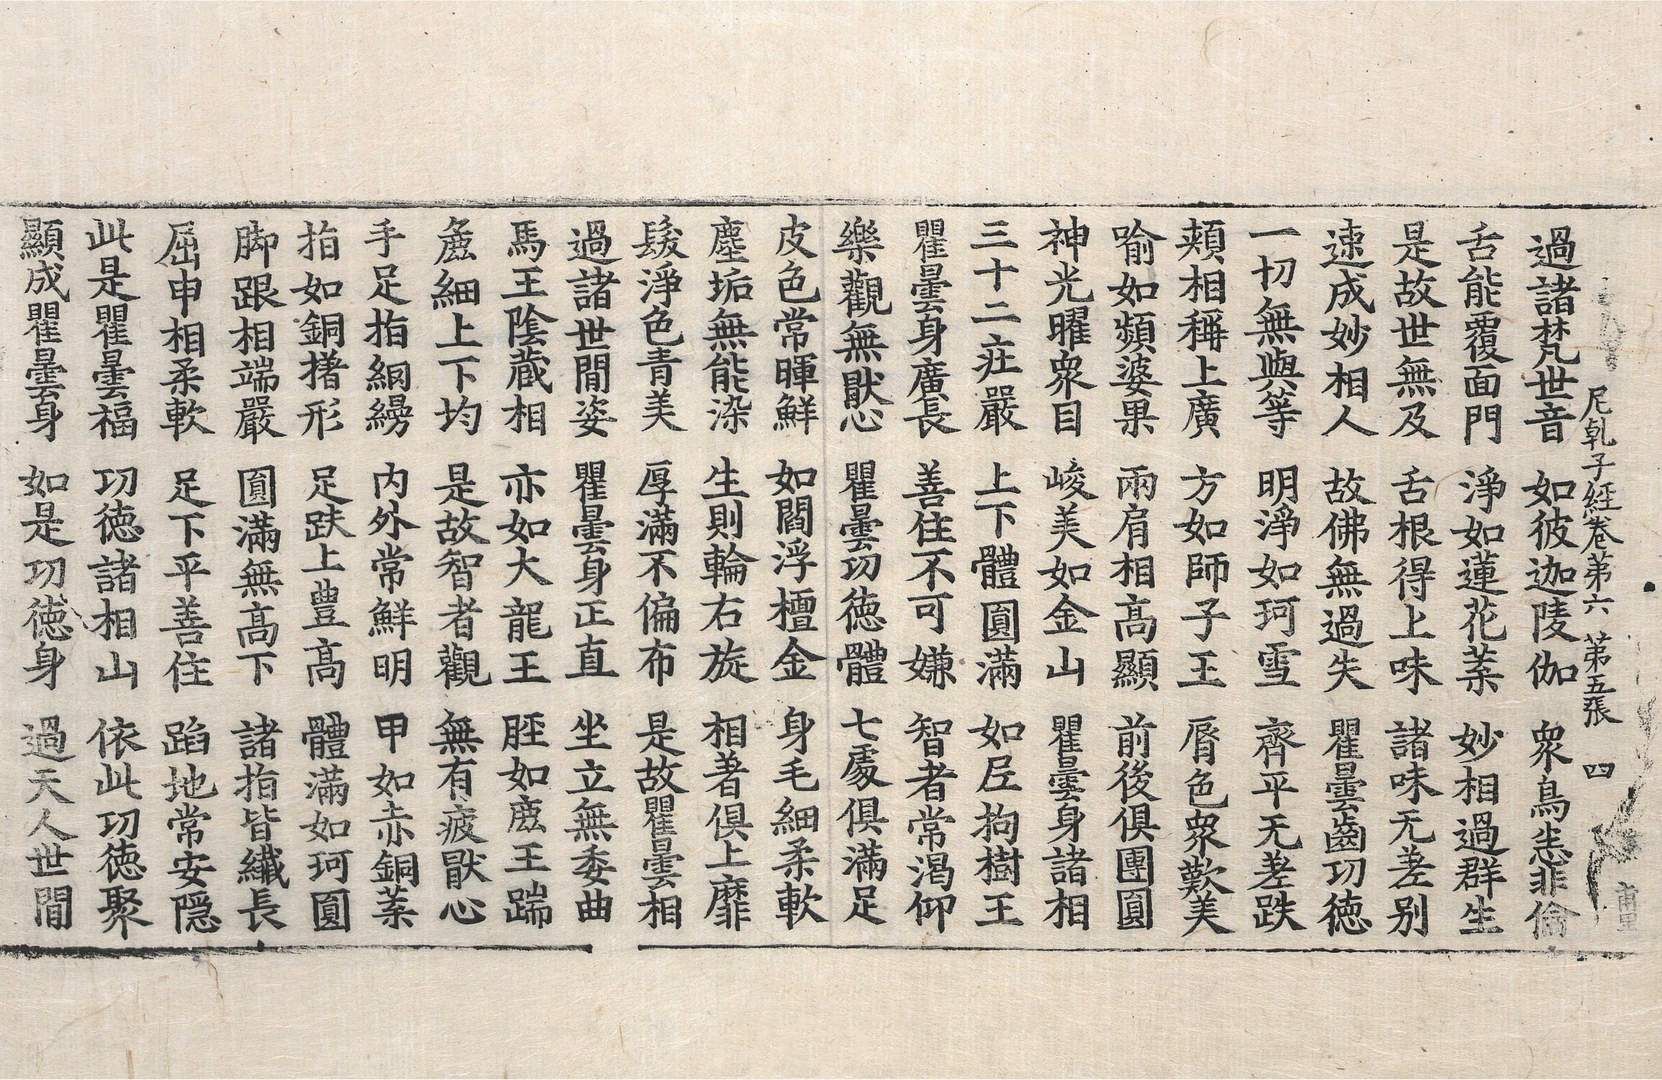 尼乹子経卷第六 第五張 四
過諸梵世音 如彼迦陵伽 衆鳥悲非倫
舌能覆面門 淨如蓮花葉 妙相過群生
是故世無及 舌根得上味 諸味无差別
速成妙相人 故佛無過失 瞿曇齒功徳
一切無與等 明淨如珂雪 齊平无差跌
頰相稱上廣 方如師子王 脣色衆歎美
喻如頻婆果 兩肩相高顯 前後俱團圓
神光曜衆目 峻美如金山 瞿曇身諸相
三十二庄嚴 上下體圓滿 如尼拘樹王
瞿曇身廣長 善住不可嫌 智者常渴仰
樂觀無猒心 瞿曇功徳體 七處俱滿足
皮色常暉鮮 如閻浮檀金 身毛細柔軟
塵垢無能染 生則輪右旋 相著俱上靡
髮淨色青美 厚滿不偏布 是故瞿曇相
過諸世閒姿 瞿曇身正直 坐立無委曲
馬王陰藏相 亦如大龍王 𦙶如鹿王踹
麁細上下均 是故智者觀 無有疲猒心
手足指網縵 内外常鮮明 甲如赤銅葉
指如銅撦形 足趺上豊髙 體滿如珂圓
脚跟相端嚴 圓滿無髙下 諸指皆纖長
屈申相柔軟 足下平善住 蹈地常安隱
此是瞿曇福 功徳諸相山 依此功徳聚
顯成瞿曇身 如是功徳身 過天人世閒